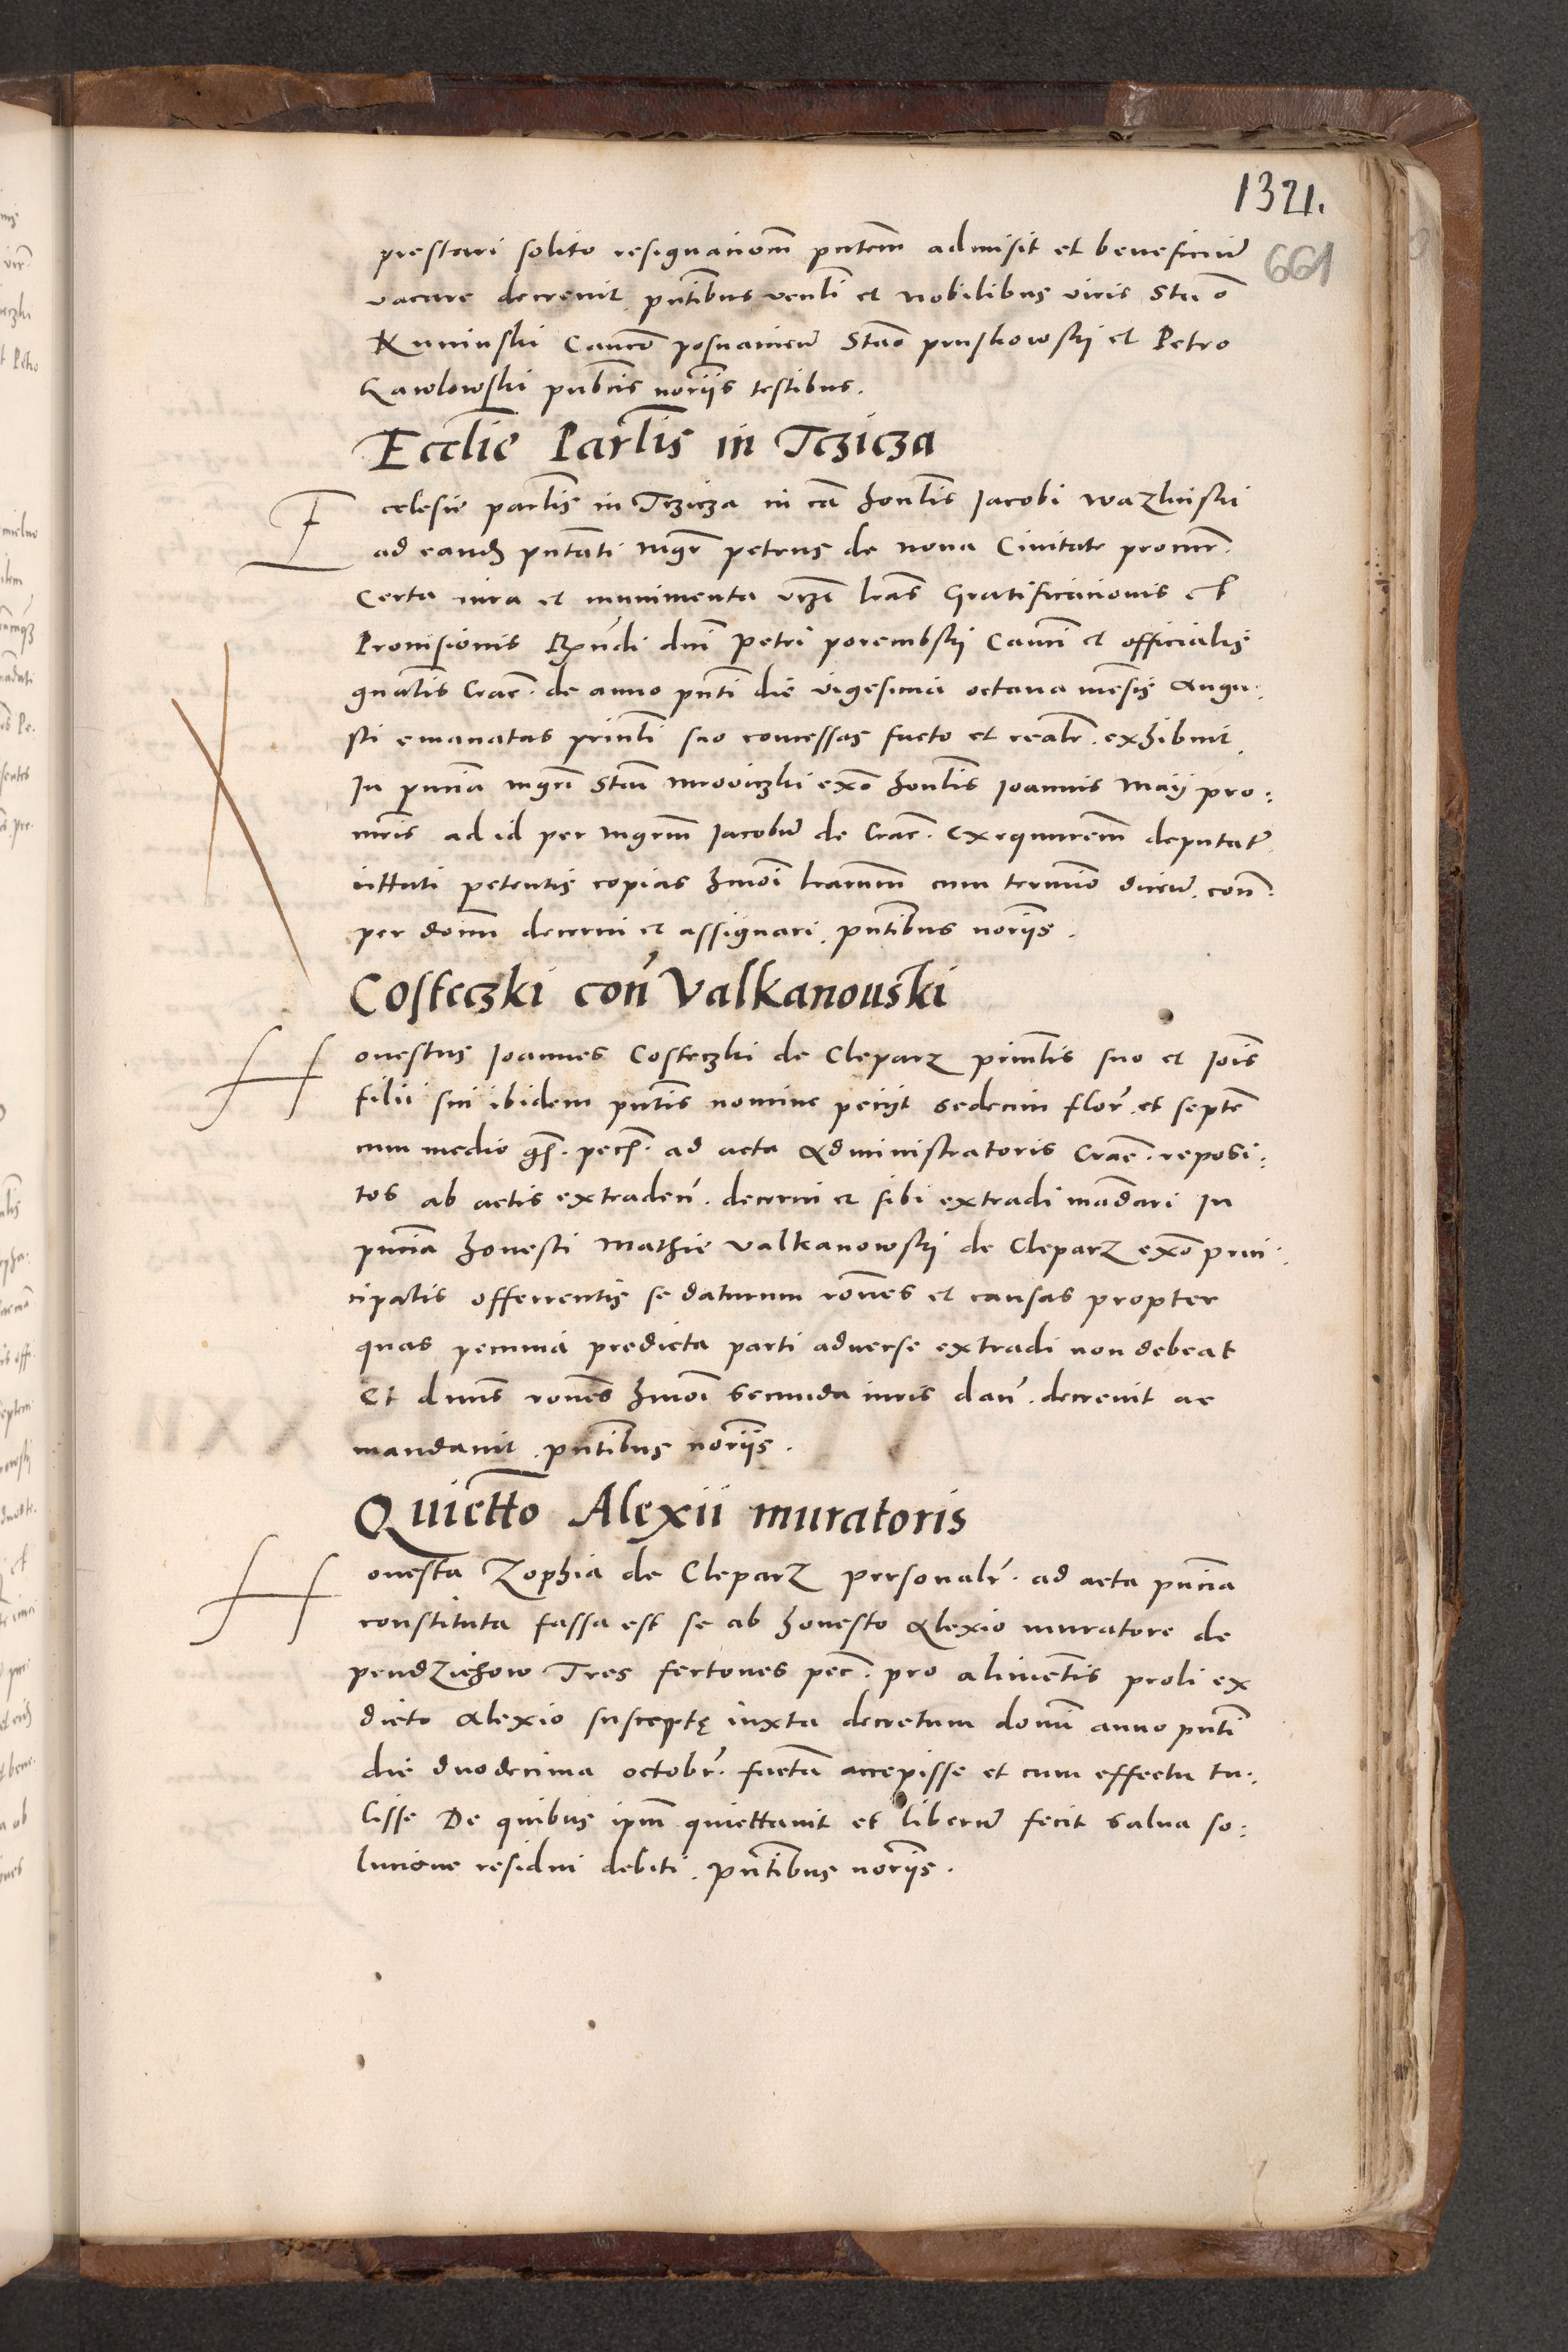 1321.
661
prestari solito resignacionem pntem admisit et beneficiu
vacare decrevit pntibus venli et nobilibus viris Stao
Kuninski Canco posnanien Stao pruskowskj et Petro
Gawlowski pubcis noriis testibus.
Ecclie Parlis in Tczicza
Ecclesie parlis in Tczicza in ca honlis Jacobi Wazlinski
ad eandz pntati Mgr petrus de nova Civitate procur.
Certa iura et munimenta vz lras Gratificacionis et
Provisionis Rndi dni Petri porembskj Canci et officialis
gnalis Crac. de anno pnti die vigesima octava mesis Augu:
sti emanatas prinli suo concessas facto et realr. exhibuit
In pncia mgri Stai mrowiczki exo honlis Joannis Maij pro:
curis ad id per mgrm Jacobu de Crac. Exequutorem deputatu
intuti petentis copias hmoi lrarum cum termino dicen. con.
per doim decerni et assignari. pntibus noriis.
Costeczki con Valkanouski
Honestus Joannes Costeczki de Cleparz prinlis suo et Jois
filii sui ibidem pntis nomine peciit sedecim flor. et septe
cum medio gs. pecs. ad acta Administratoris Crac. reposi:
tos ab actis extraden. decerni et sibi extradi madari In
pncia honesti Mathie Valkanowskj de Cleparz exo prin:
cipalis offerrentis se daturum rones et causas propter
quas pecunia predicta parti adverse extradi non debeat
Et dnus rones hmoi secunda iuris dan. decrevit ac
mandavit. pntibus noriis.
Quietto Alexii muratoris
Honesta Zophia de Cleparz personalr. ad acta pncia
constituta fassa est se ab honesto Alexio muratore de
pendziechow Tres fertones pec. pro alimentis proli ex
dicto Alexio susceptę iuxta decretum domi anno pnti
die duodecima octobr. factu accepisse et cum effectu tu:
lisse De quibus ipm quiettavit et liberu fecit salva so:
lucione residui debiti. pntibus noriis.